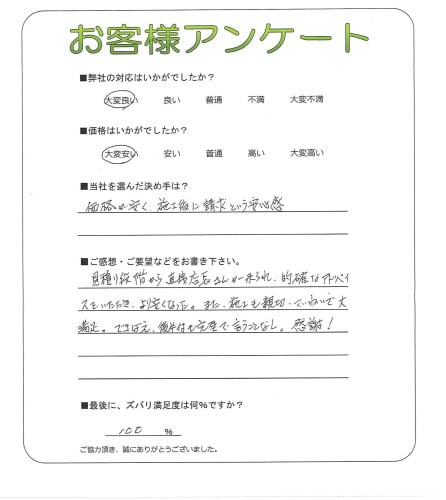 お客様アンケート
■弊社の対応はいかがでしたか？
大変良い 良い 普通 不満 大変不満
■価格はいかがでしたか？
大変安い 安い 普通 高い 大変高い
■当社を選んだ決め手は？
価格が安く、施工後に請求という安心感
■ご感想・ご要望などをお書き下さい。
見積り段階から直接店長さんが来られ、的確なアドバイ
スをいただき、より安くなった。また、施工も親切、ていねいで大
満足。できばえ、後片付も完璧で言うことなし。感謝！
■最後に、ズバリ満足度は何％ですか？
100 ％
ご協力頂き、誠にありがとうございました。